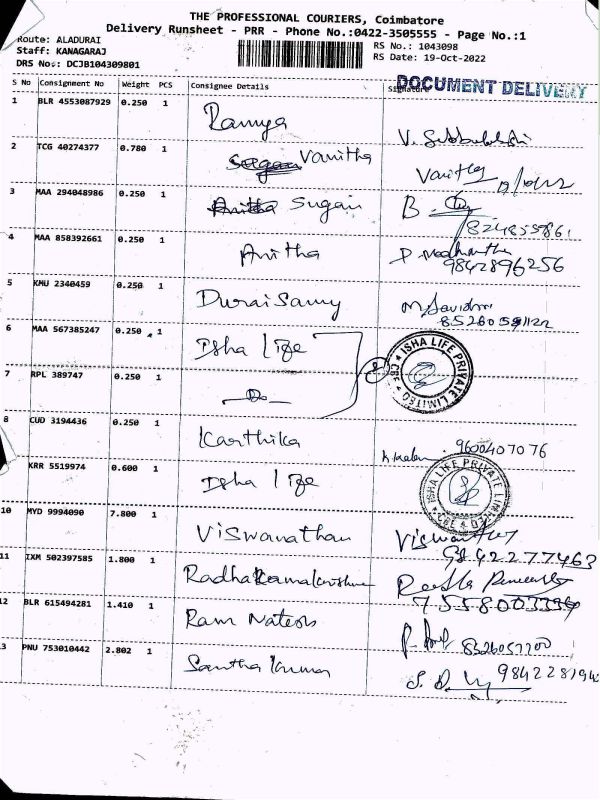 THE PROFESSIONAL COURIERS, Coimbatore
Delivery Runsheet - PRR - Phone No.:0422-3505555 - Page No.:1
Route: ALADURAI
Staff: KANAGARAJ
DRS No: DCJB104309801
RS No.: 1043098
RS Date: 19-Oct-2022
S No Consignment No Weight PCS Consignee Details Signature
DOCUMENT DELIVERY
1 BLR 4553087929 0.250 1 Ramya
2 TCG 40274377 0.780 1 Vanitha Vanitha
3 MAA 294048986 0.250 1 Anitha Sugan B
4 MAA 858392661 0.250 1 Anitha
9842896256
5 KMU 2340459 0.250 1 Duraisamy
6 MAA 567385247 0.250 1 Isha Life
ISHA LIFE PRIVATE LIMITED * CBE *
7 RPL 389747 0.250 1 Do
8 CUD 3194436 0.250 1 Karthika 9600407076
KRR 5519974 0.600 1 Isha Life
ISHA LIFE PRIVATE LIMITED * CBE *
10 MYD 9994090 7.800 1 Viswanathan
9842277463
11 IXM 502397585 1.800 1 Radha
12 BLR 615494281 1.410 1 Ram Natesh
8526057700
3 PNU 753010442 2.802 1 Santha Kumar